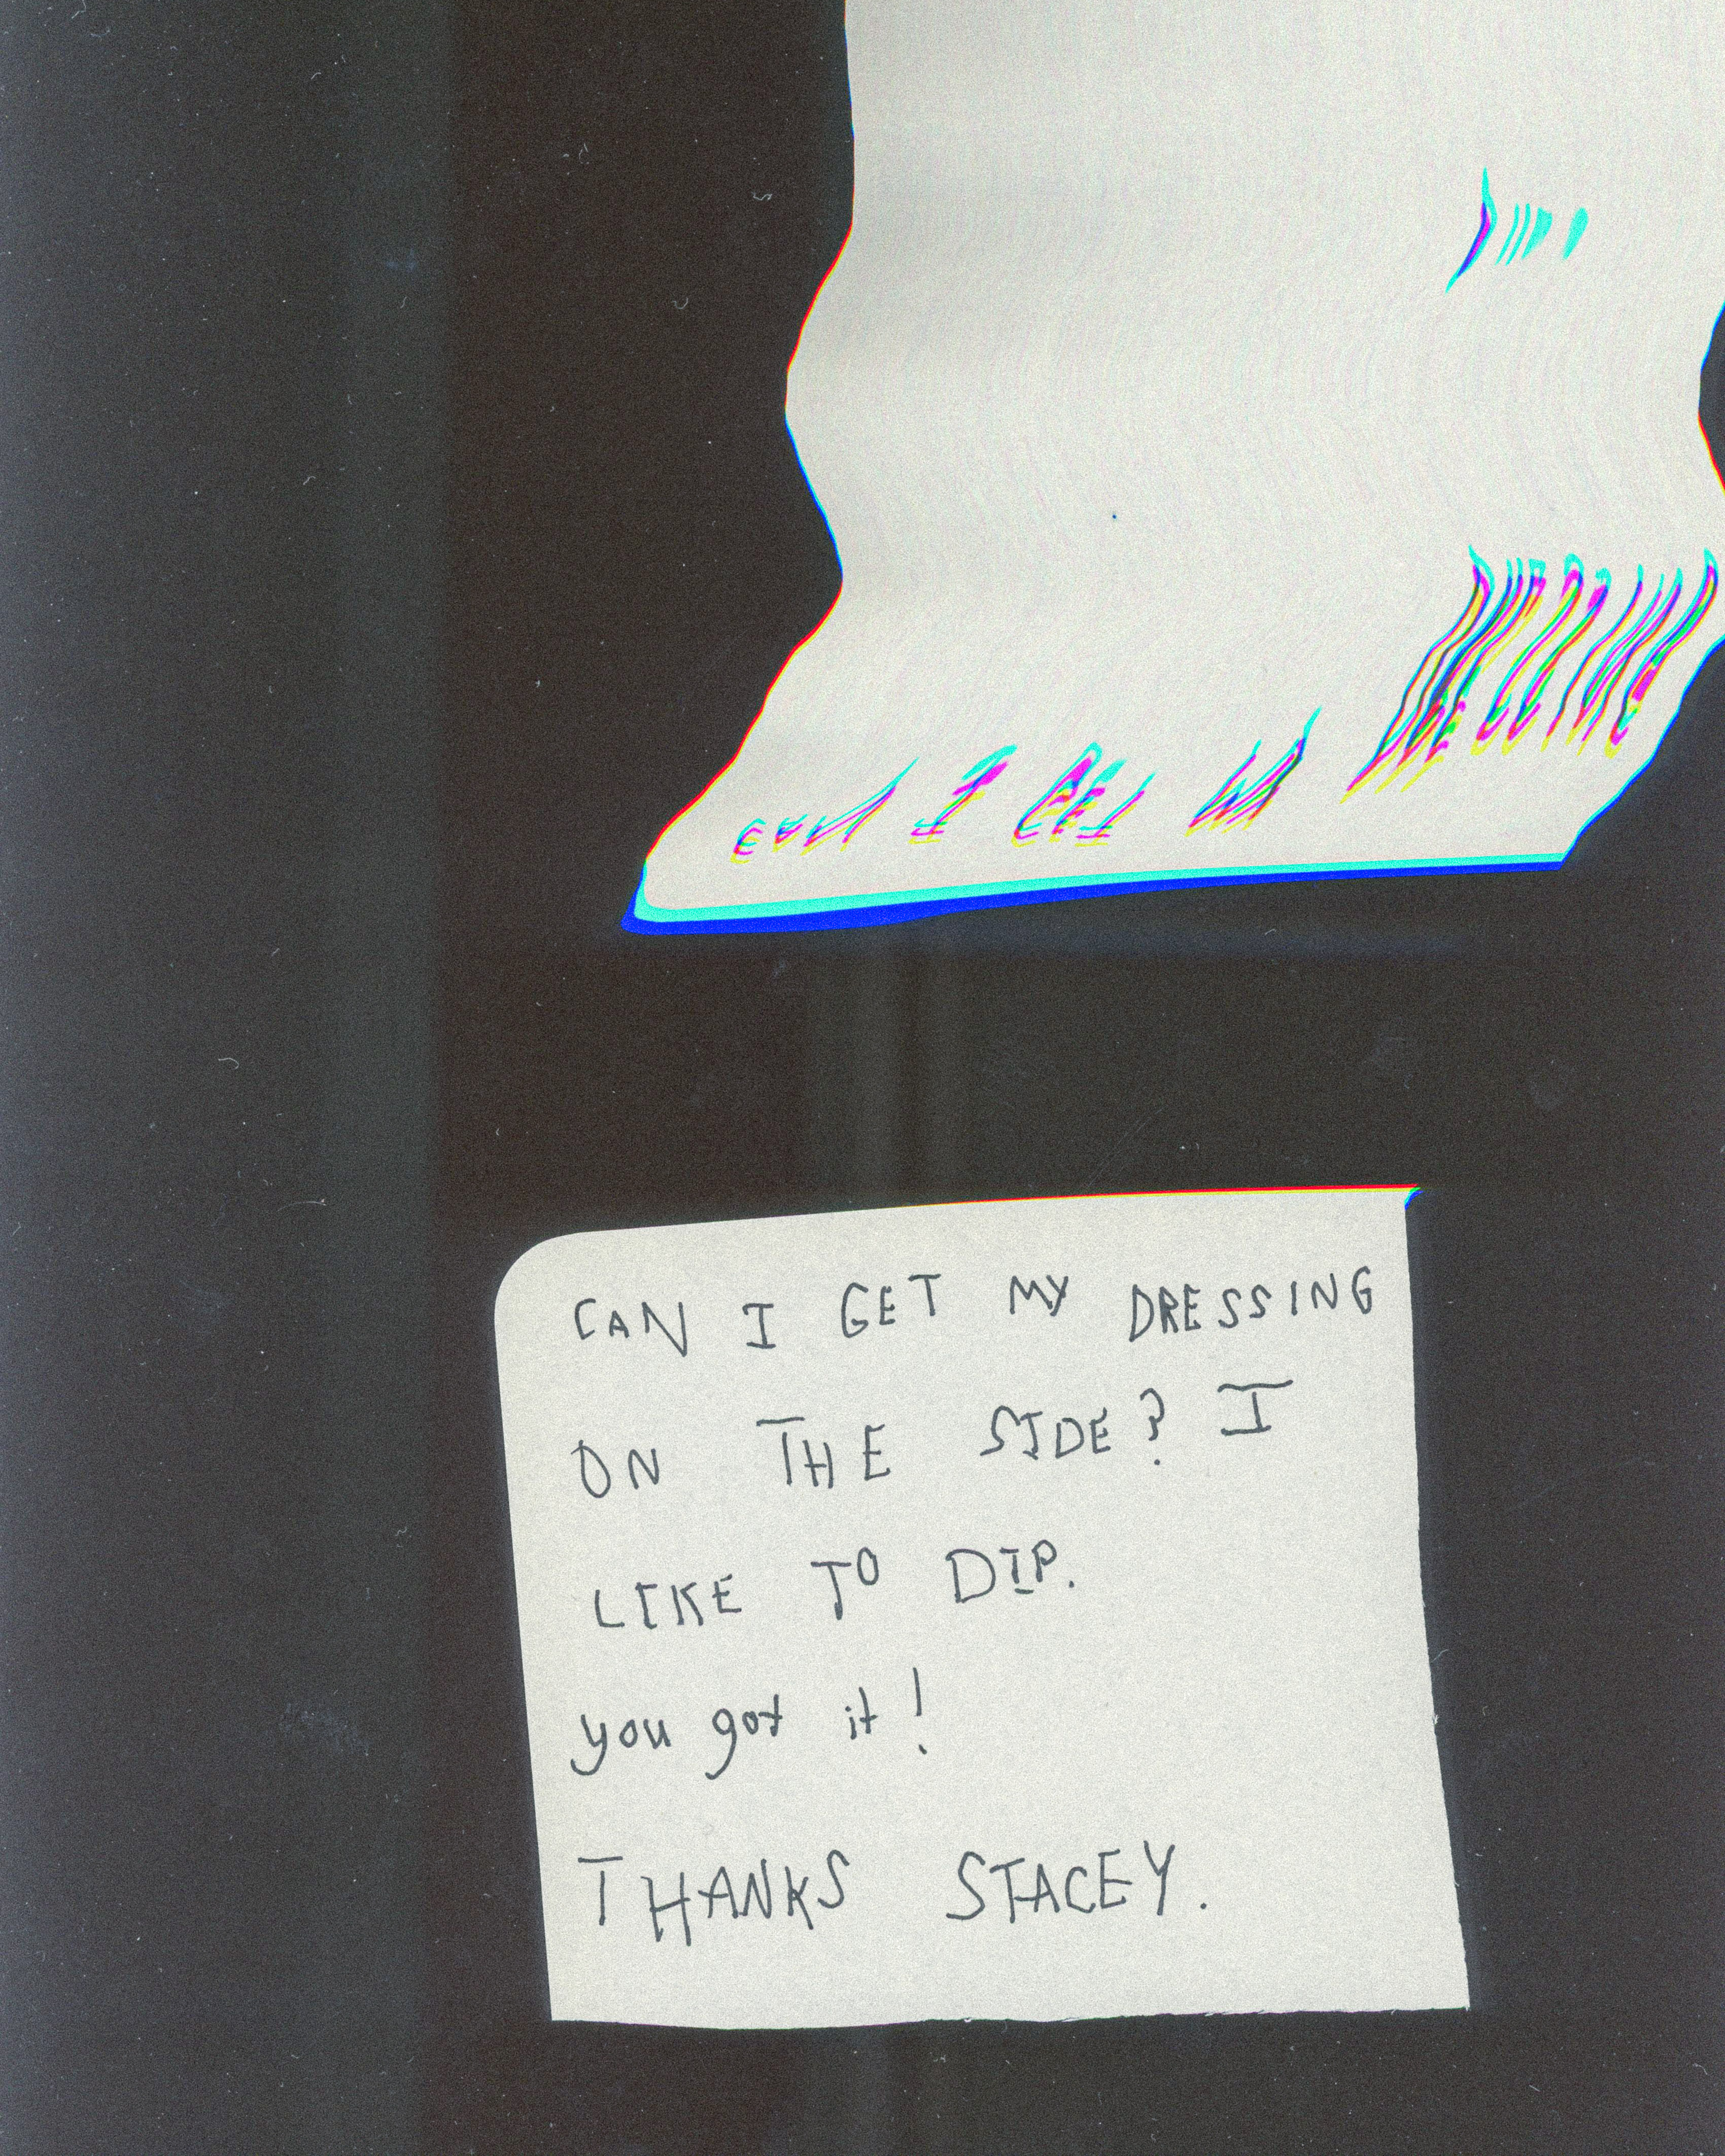 CAN I GET MY DRESSING
ON THE SIDE? I
LIKE TO DIP.
you got it!
THANKS STACEY.